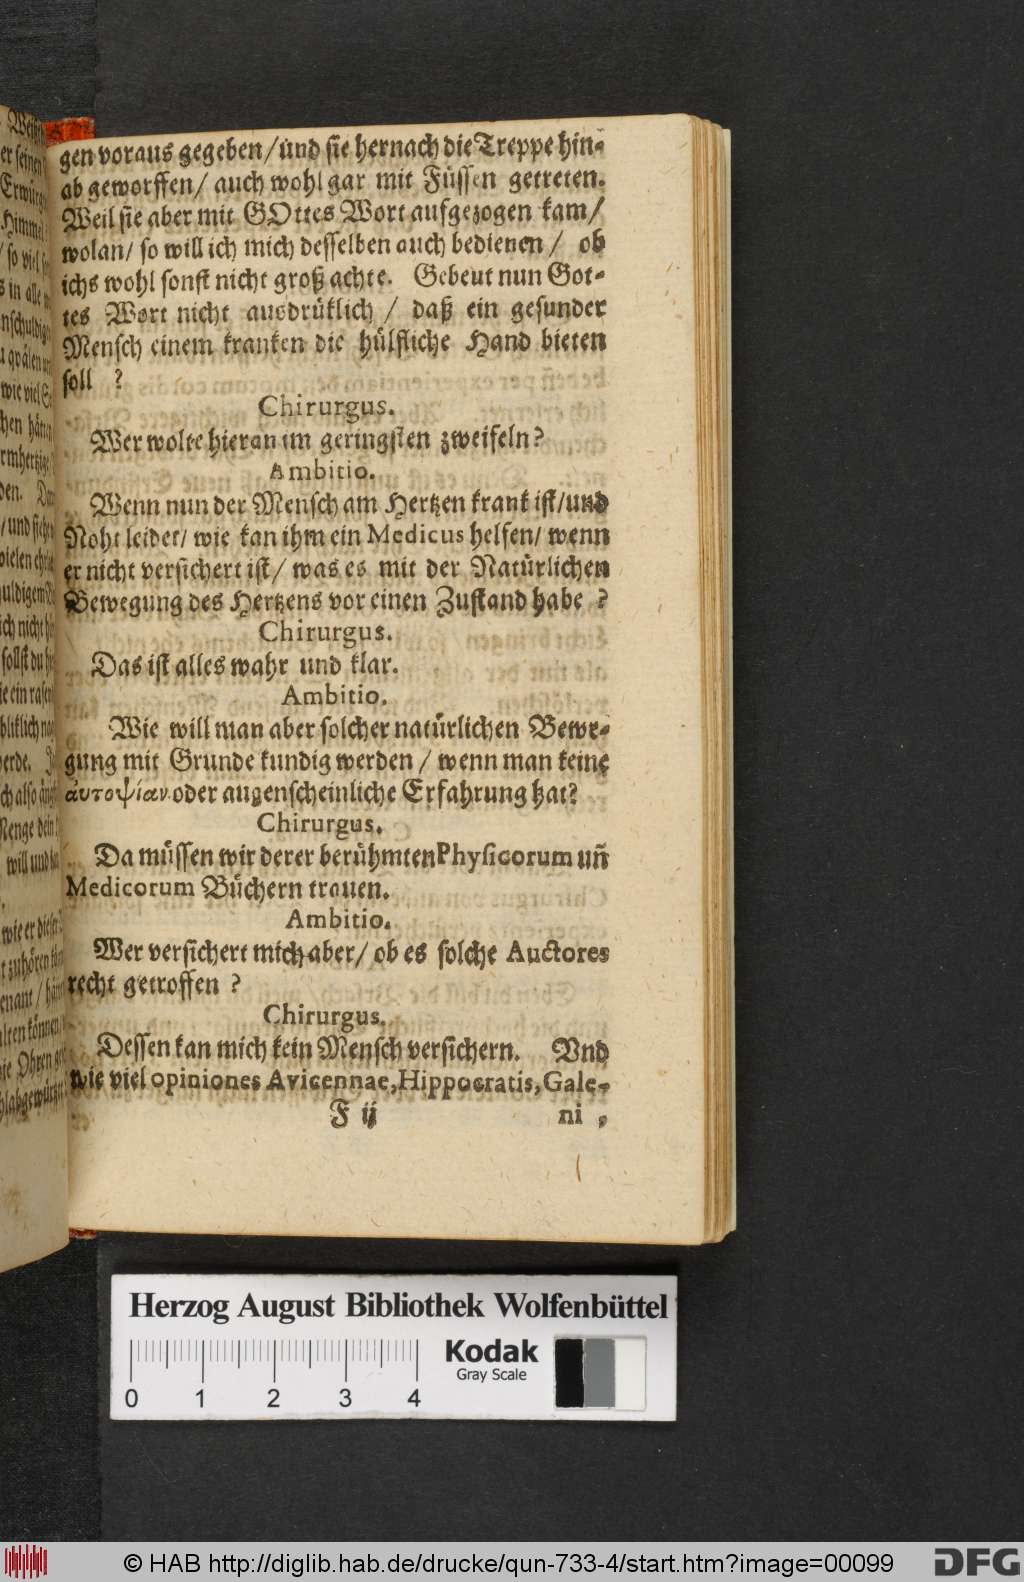 gen voraus gegeben/ und sie hernach die Treppe hin-
ab geworffen/ auch wohl gar mit Füssen getreten.
Weil sie aber mit GOttes Wort aufgezogen kam/
wolan/ so will ich mich desselben auch bedienen / ob
ichs wohl sonst nicht groß achte. Gebeut nun Got-
tes Wort nicht ausdrüklich / daß ein gesunder
Mensch einem kranken die hülfliche Hand bieten
soll ?
Chirurgus.
Wer wolte hieran im geringsten zweifeln?
Ambitio.
Wenn nun der Mensch am Hertzen krank ist/und
Noht leidet/ wie kan ihm ein Medicus helfen/ wenn
er nicht versichert ist/ was es mit der Natürlichen
Bewegung des Hertzens vor einen Zustand habe ?
Chirurgus.
Das ist alles wahr und klar.
Ambitio.
Wie will man aber solcher natürlichen Bewe-
gung mit Grunde kundig werden / wenn man keine
ἀυτοψίαν oder augenscheinliche Erfahrung hat?
Chirurgus.
Da müssen wir derer berühmten Physicorum uñ
Medicorum Büchern trauen.
Ambitio.
Wer versichert mich aber/ ob es solche Auctores
recht getroffen ?
Chirurgus.
Dessen kan mich kein Mensch versichern. Vnd
wie viel opiniones Avicennae, Hippocratis, Gale-
F ij
ni ,
Herzog August Bibliothek Wolfenbüttel
Kodak
Gray Scale
0 1 2 3 4
© HAB http://diglib.hab.de/drucke/qun-733-4/start.htm?image=00099
DFG